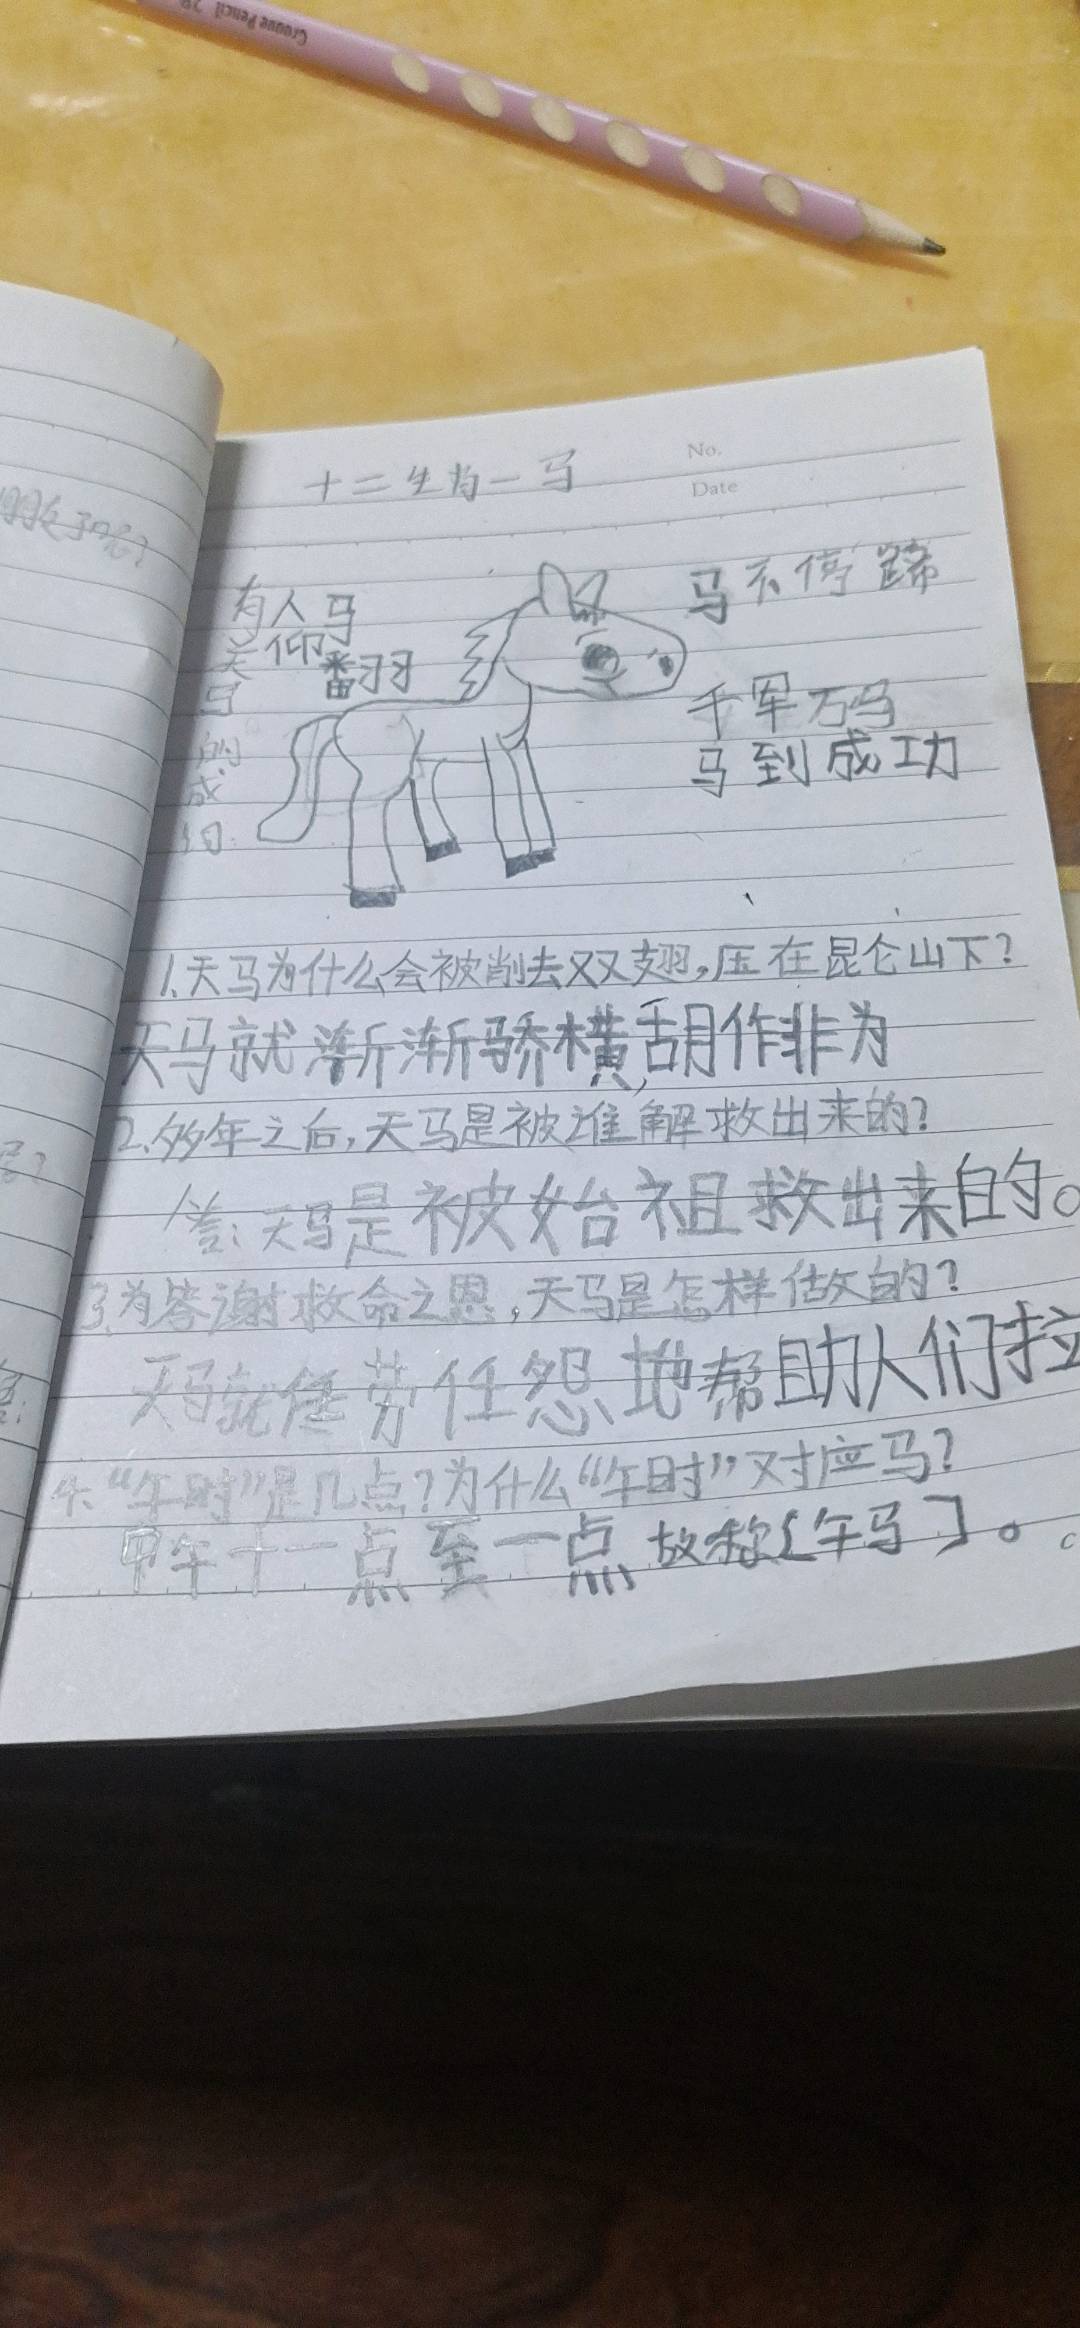 Groove Pencil 2B
No.
Date
十二生肖一马
有关马的成语:
人仰马翻
马不停蹄
千军万马
马到成功
1.天马为什么会被削去双翅,压在昆仑山下?
天马就渐渐骄横,胡作非为
2.多年之后,天马是被谁解救出来的?
答:天马是被始祖救出来的。
3.为答谢救命之恩,天马是怎样做的?
天马就任劳任怨地帮助人们拉
4.“午时”是几点?为什么“午时”对应马?
甲午十一点至一点故称[午马]。